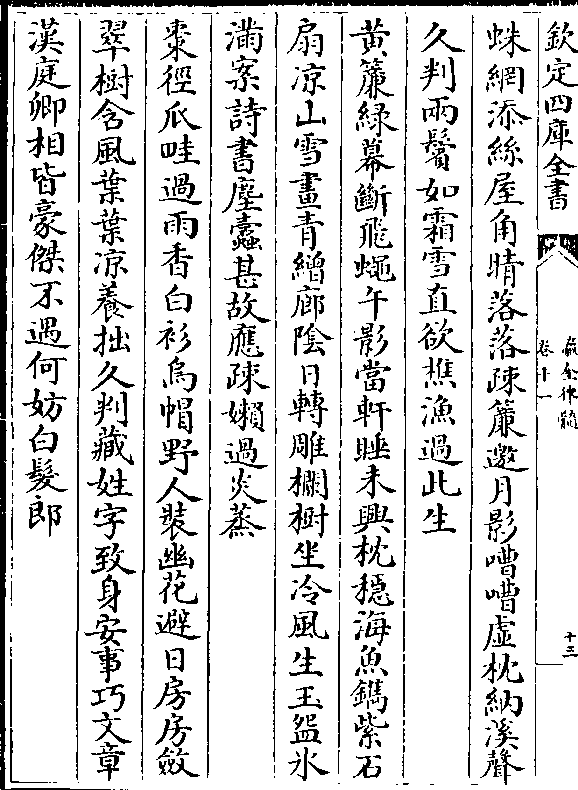 欽定四庫全書
瀛奎律髓
卷十一
十三
蛛網添絲屋角晴落落疎簾邀月影嘈嘈虛枕納溪聲
久判兩鬢如霜雪直欲樵漁過此生
黄簾緑幕斷飛蠅午影當軒睡未興枕穏海魚鐫紫石
扇凉山雪畫青繒廊陰日轉雕欄樹坐冷風生玉盌氷
滿案詩書塵蠧甚故應疎嬾過炎蒸
棗徑瓜畦過雨香白衫烏帽野人裝幽花避日房房斂
翠樹含風葉葉凉養拙久判藏姓字致身安事巧文章
漢庭卿相皆豪傑不遇何妨白髮郎